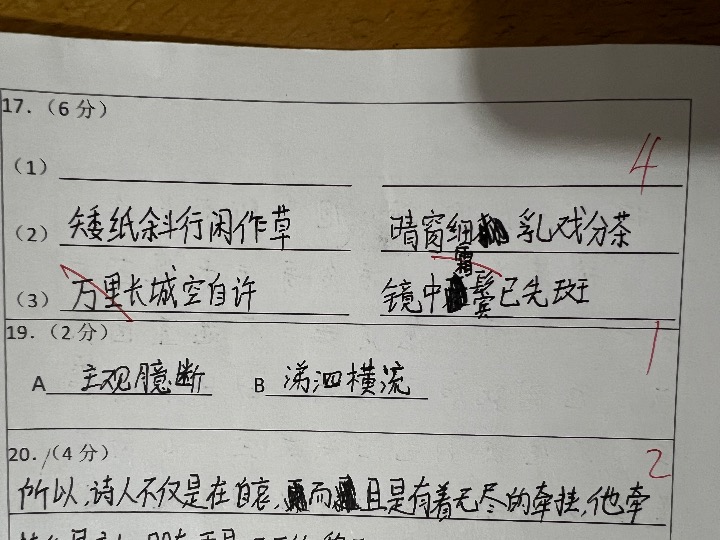 17.（6分）
4
（1）
（2） 矮纸斜行闲作草 晴窗细乳戏分茶
（3） 万里长城空自许 镜中霜鬓已先斑
19.（2分）
1
A 主观臆断 B 涕泗横流
20.（4分）
2
所以,诗人不仅是在自哀,而且是有着无尽的牵挂,他牵